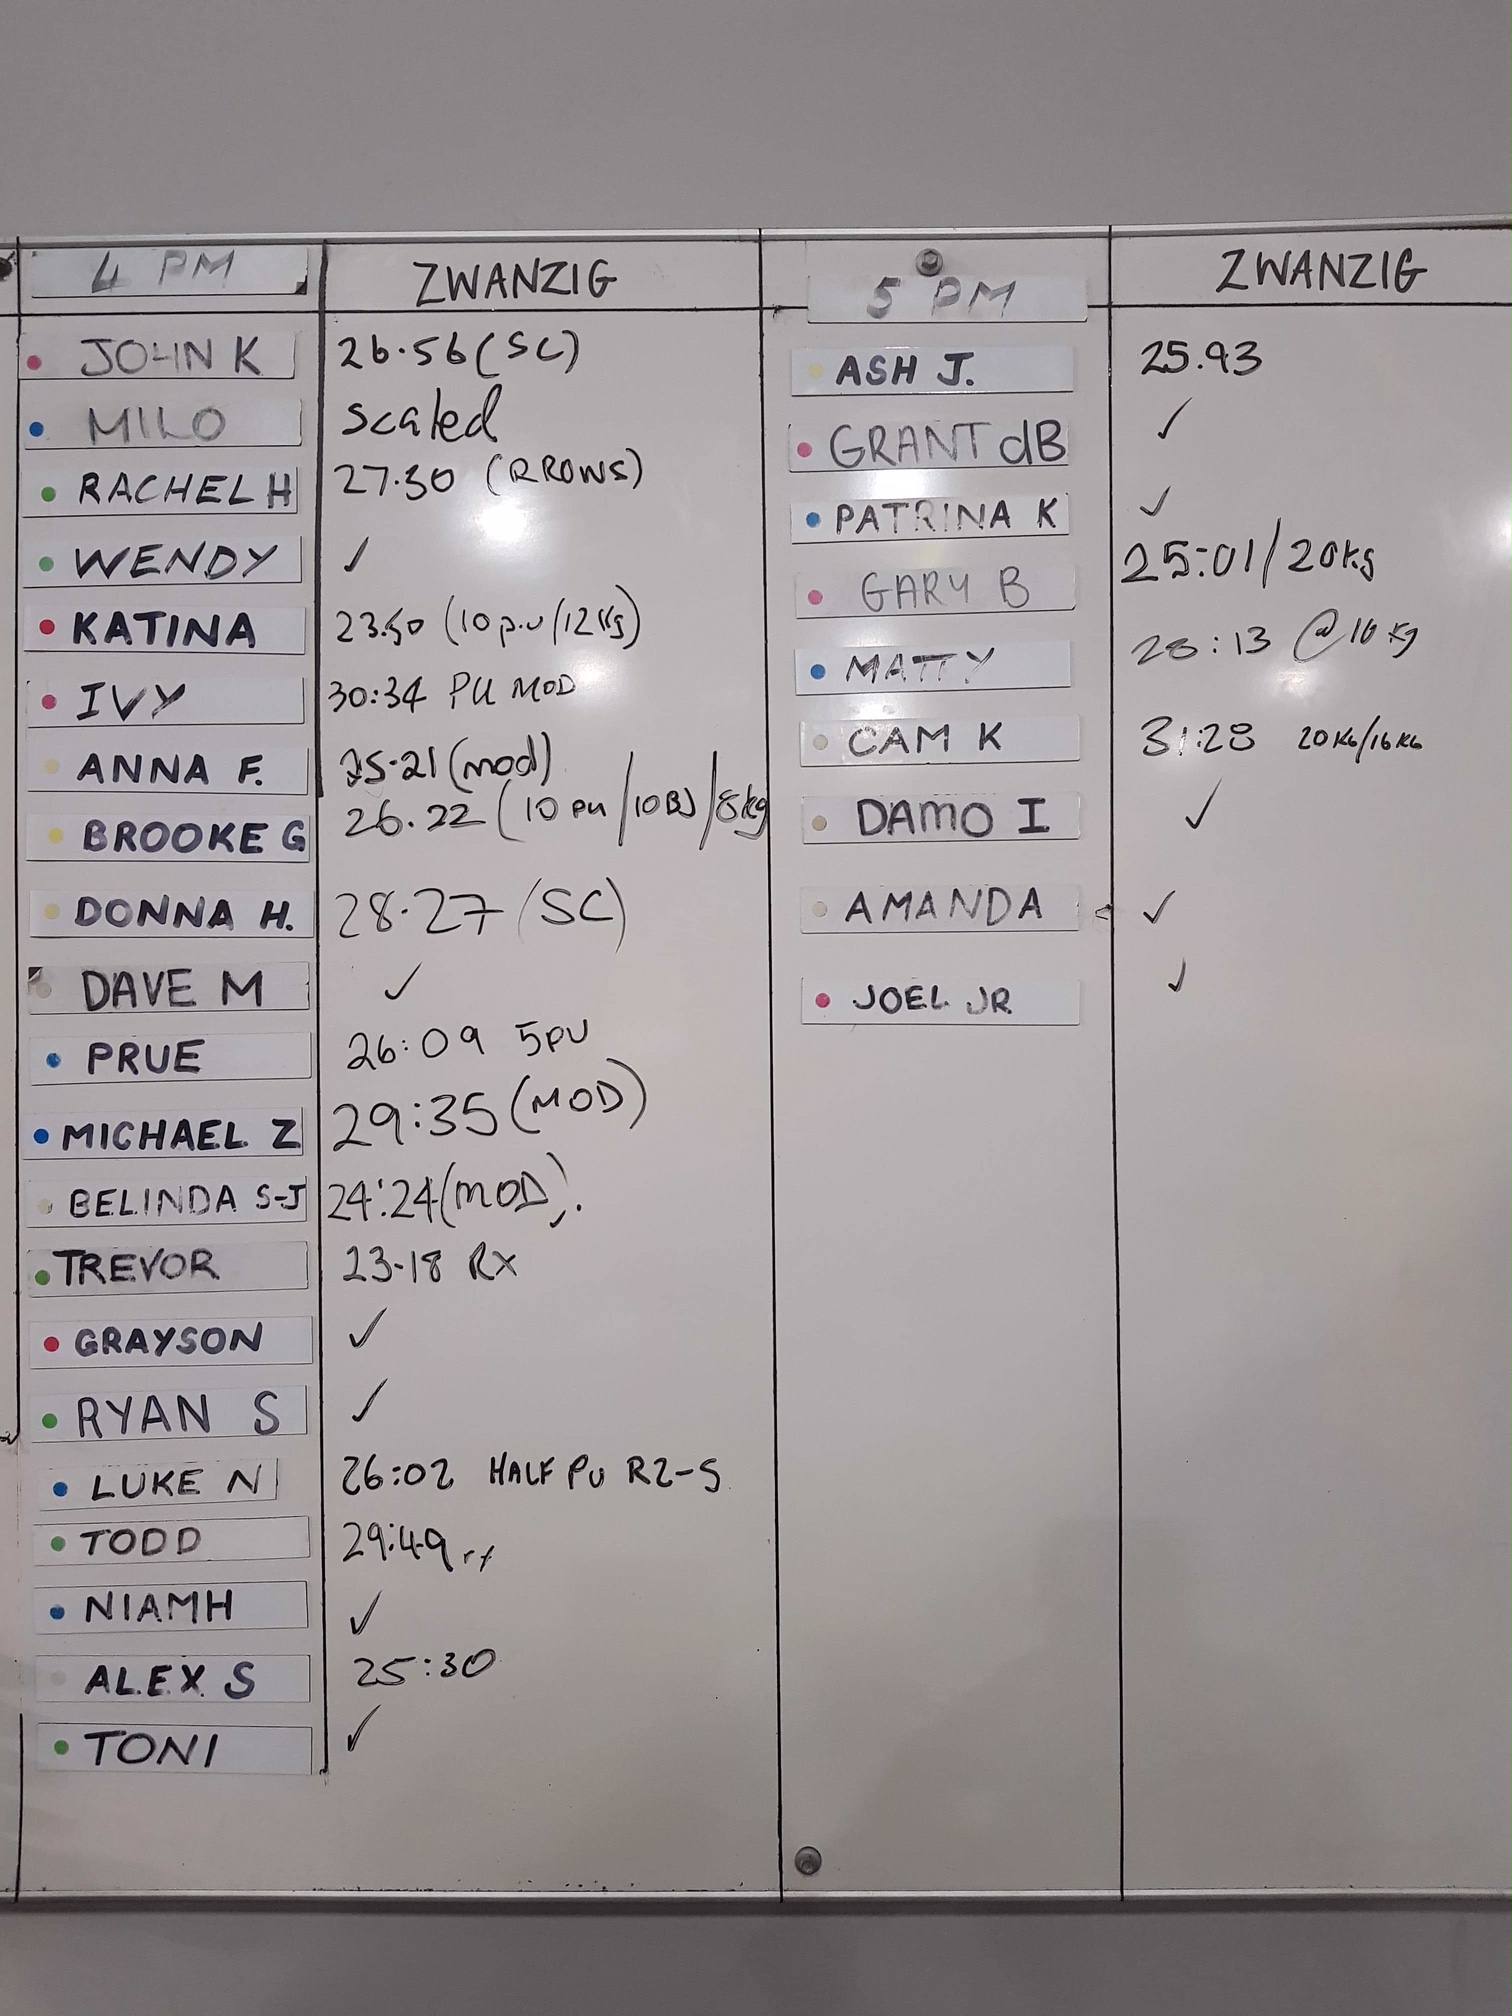 4 PM ZWANZIG
JOHN K 26.56 (SC)
MILO scaled
RACHEL H 27.30 (R ROWS)
WENDY ✓
KATINA 23.50 (10 p.u/12kg)
IVY 30:34 PU MOD
ANNA F. 25.21 (mod)
BROOKE G 26.22 (10 pu/10BJ/8kg
DONNA H. 28.27 (SC)
DAVE M ✓
PRUE 26:09 5PU
MICHAEL Z 29:35 (MOD)
BELINDA S-J 24:24 (MOD).
TREVOR 23.18 RX
GRAYSON ✓
RYAN S ✓
LUKE N 26:02 HALF PU R2-5
TODD 29:49 rx
NIAMH ✓
ALEX S 25:30
TONI ✓
5 PM ZWANZIG
ASH J. 25.93
GRANT dB ✓
PATRINA K ✓
GARY B 25:01/20kg
MATTY 28:13 @16kg
CAM K 31:28 20KG/16KG
DAMO I ✓
AMANDA ✓
JOEL JR ✓